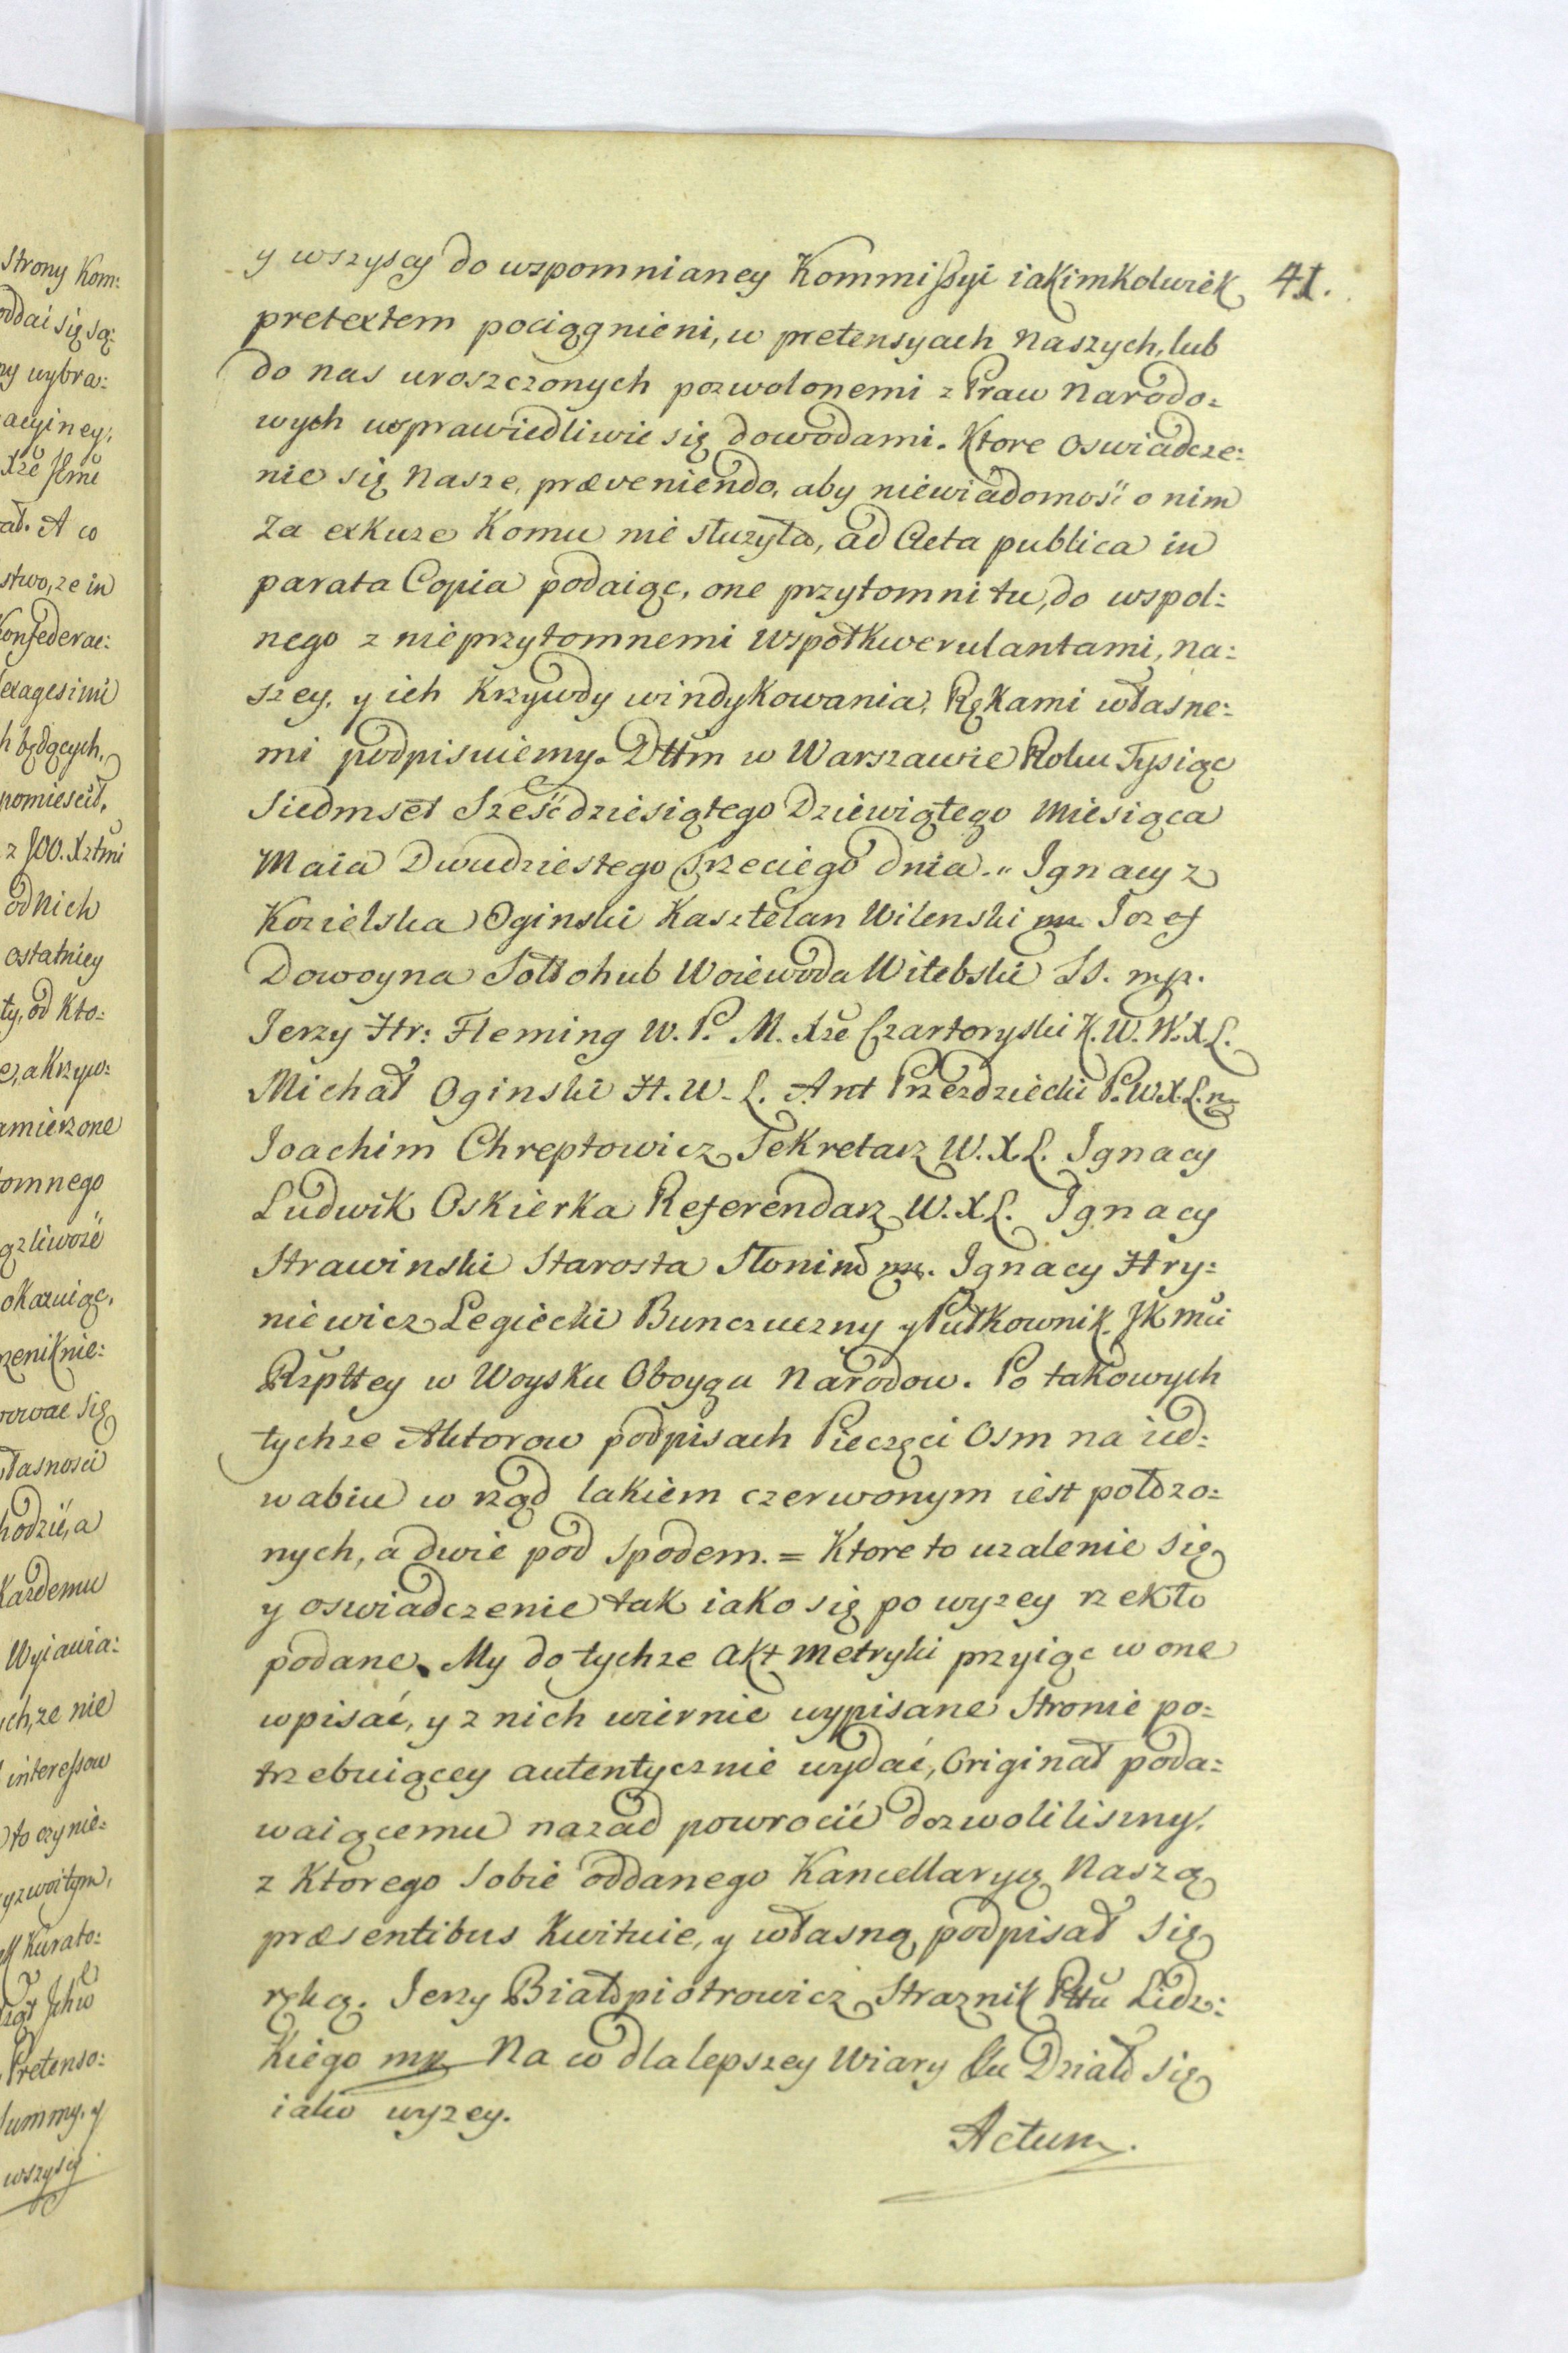 41.
y wszyscy do wspomnianey Kommissyi iakimkolwiek
pretextem pociągnieni, w pretensyach naszych, lub
do nas uroszczonych pozwolonemi z Praw Narodo=
wych usprawiedliwie się dowodami. Ktore oswiadcze=
nie się nasze, præveniendo, aby niewiadomość o nim
za exkuze komu nie służyła, ad Acta publica in
parata Copia podaiąc, one przytomni tu, do wspol=
nego z nieprzytomnemi wspołkwerulantami, na=
szey, y ich krzywdy windykowania, Rękami własne=
mi podpisuiemy. Dttm w Warszawie Roku Tysiąc
Siedmset Sześćdziesiątego Dziewiątego Miesiąca
Maia Dwudziestego Trzeciego dnia.„ Ignacy z
Kozielska Oginski Kasztelan Wilenski mp Jozef
Dowoyna Sołłohub Woiewoda Witebski SS. mp.
Jerzy Hr: Fleming W. P. M. Xże Czartoryski K. W. W. X. L.
Michał Oginski H. W. L. Ant Przezdziecki P. W. X. L. mp
Joachim Chreptowicz Sekretarz W. X. L. Ignacy
Ludwik Oskierka Referendarz W. X. L. Ignacy
Strawinski Starosta Słonim mp. Ignacy Hry=
niewicz Legiecki Bunczuczny y Pułkownik JKmći
Rzpttey w Woysku Oboyga Narodow. Po takowych
tychże Aktorow podpisach Pieczęci Osm na ied=
wabiu w rząd lakiem czerwonym iest połozo=
nych, a dwie pod spodem. = Ktore to uzalenie się
y oswiadczenie tak iako się po wyzey rzekło
podane. My do tychze akt Metryki przyiąc w one
wpisać, y z nich wiernie wypisane Stronie po=
trzebuiącey autentycznie wydać, Originał poda=
waiącemu nazad powrocić dozwolilismy.
z ktorego sobie oddanego Kancellaryą Naszą
præsentibus kwituie, y własną podpisał się
ręką. Jerzy Białłopiotrowicz Straznik Pttu Lidz=
kiego mp Na co dla lepszey Wiary etc Działo się
iako wyzey.
Actum.